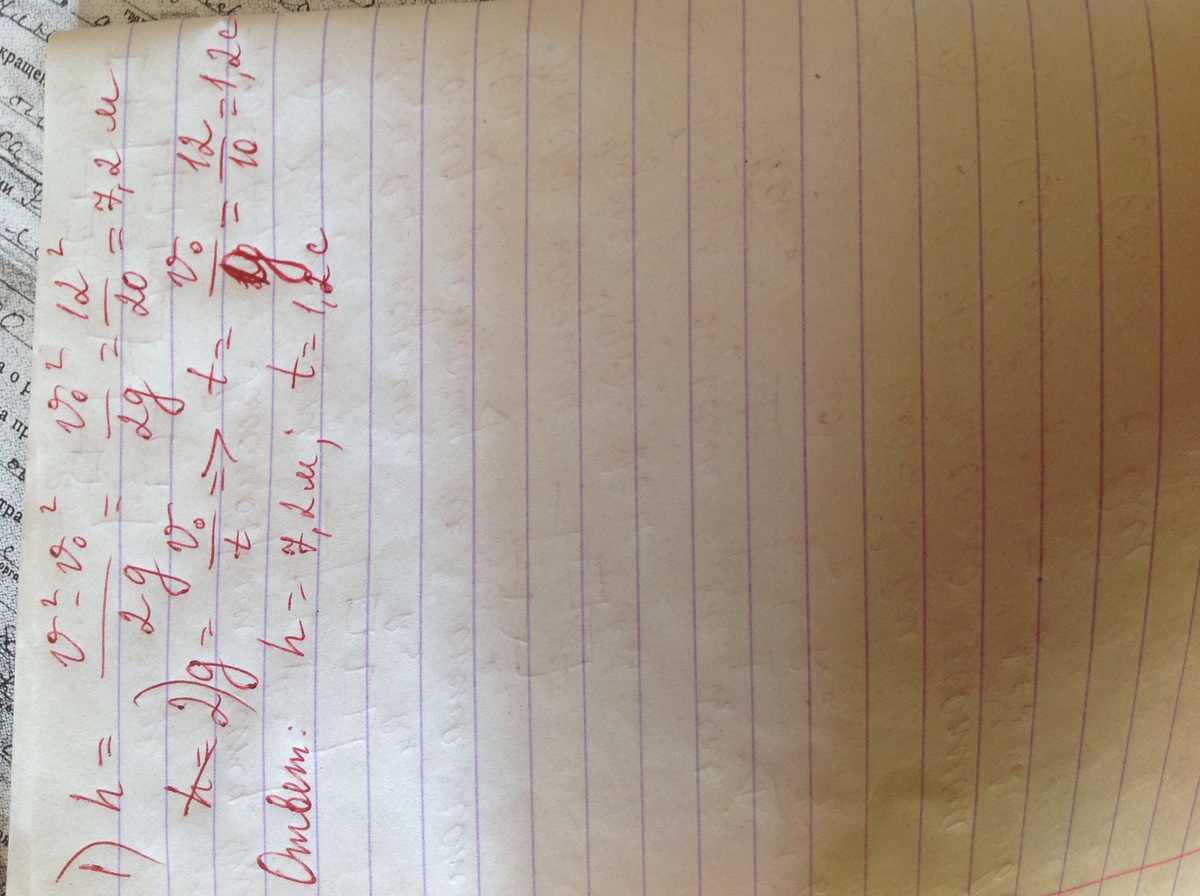 1) h = (v² - v₀²)/(2g) = v₀²/(2g) = 12²/20 = 7,2 м
h = 2) g = v₀/t => t = v₀/g = 12/10 = 1,2 с
Ответ: h = 7,2 м; t = 1,2 с